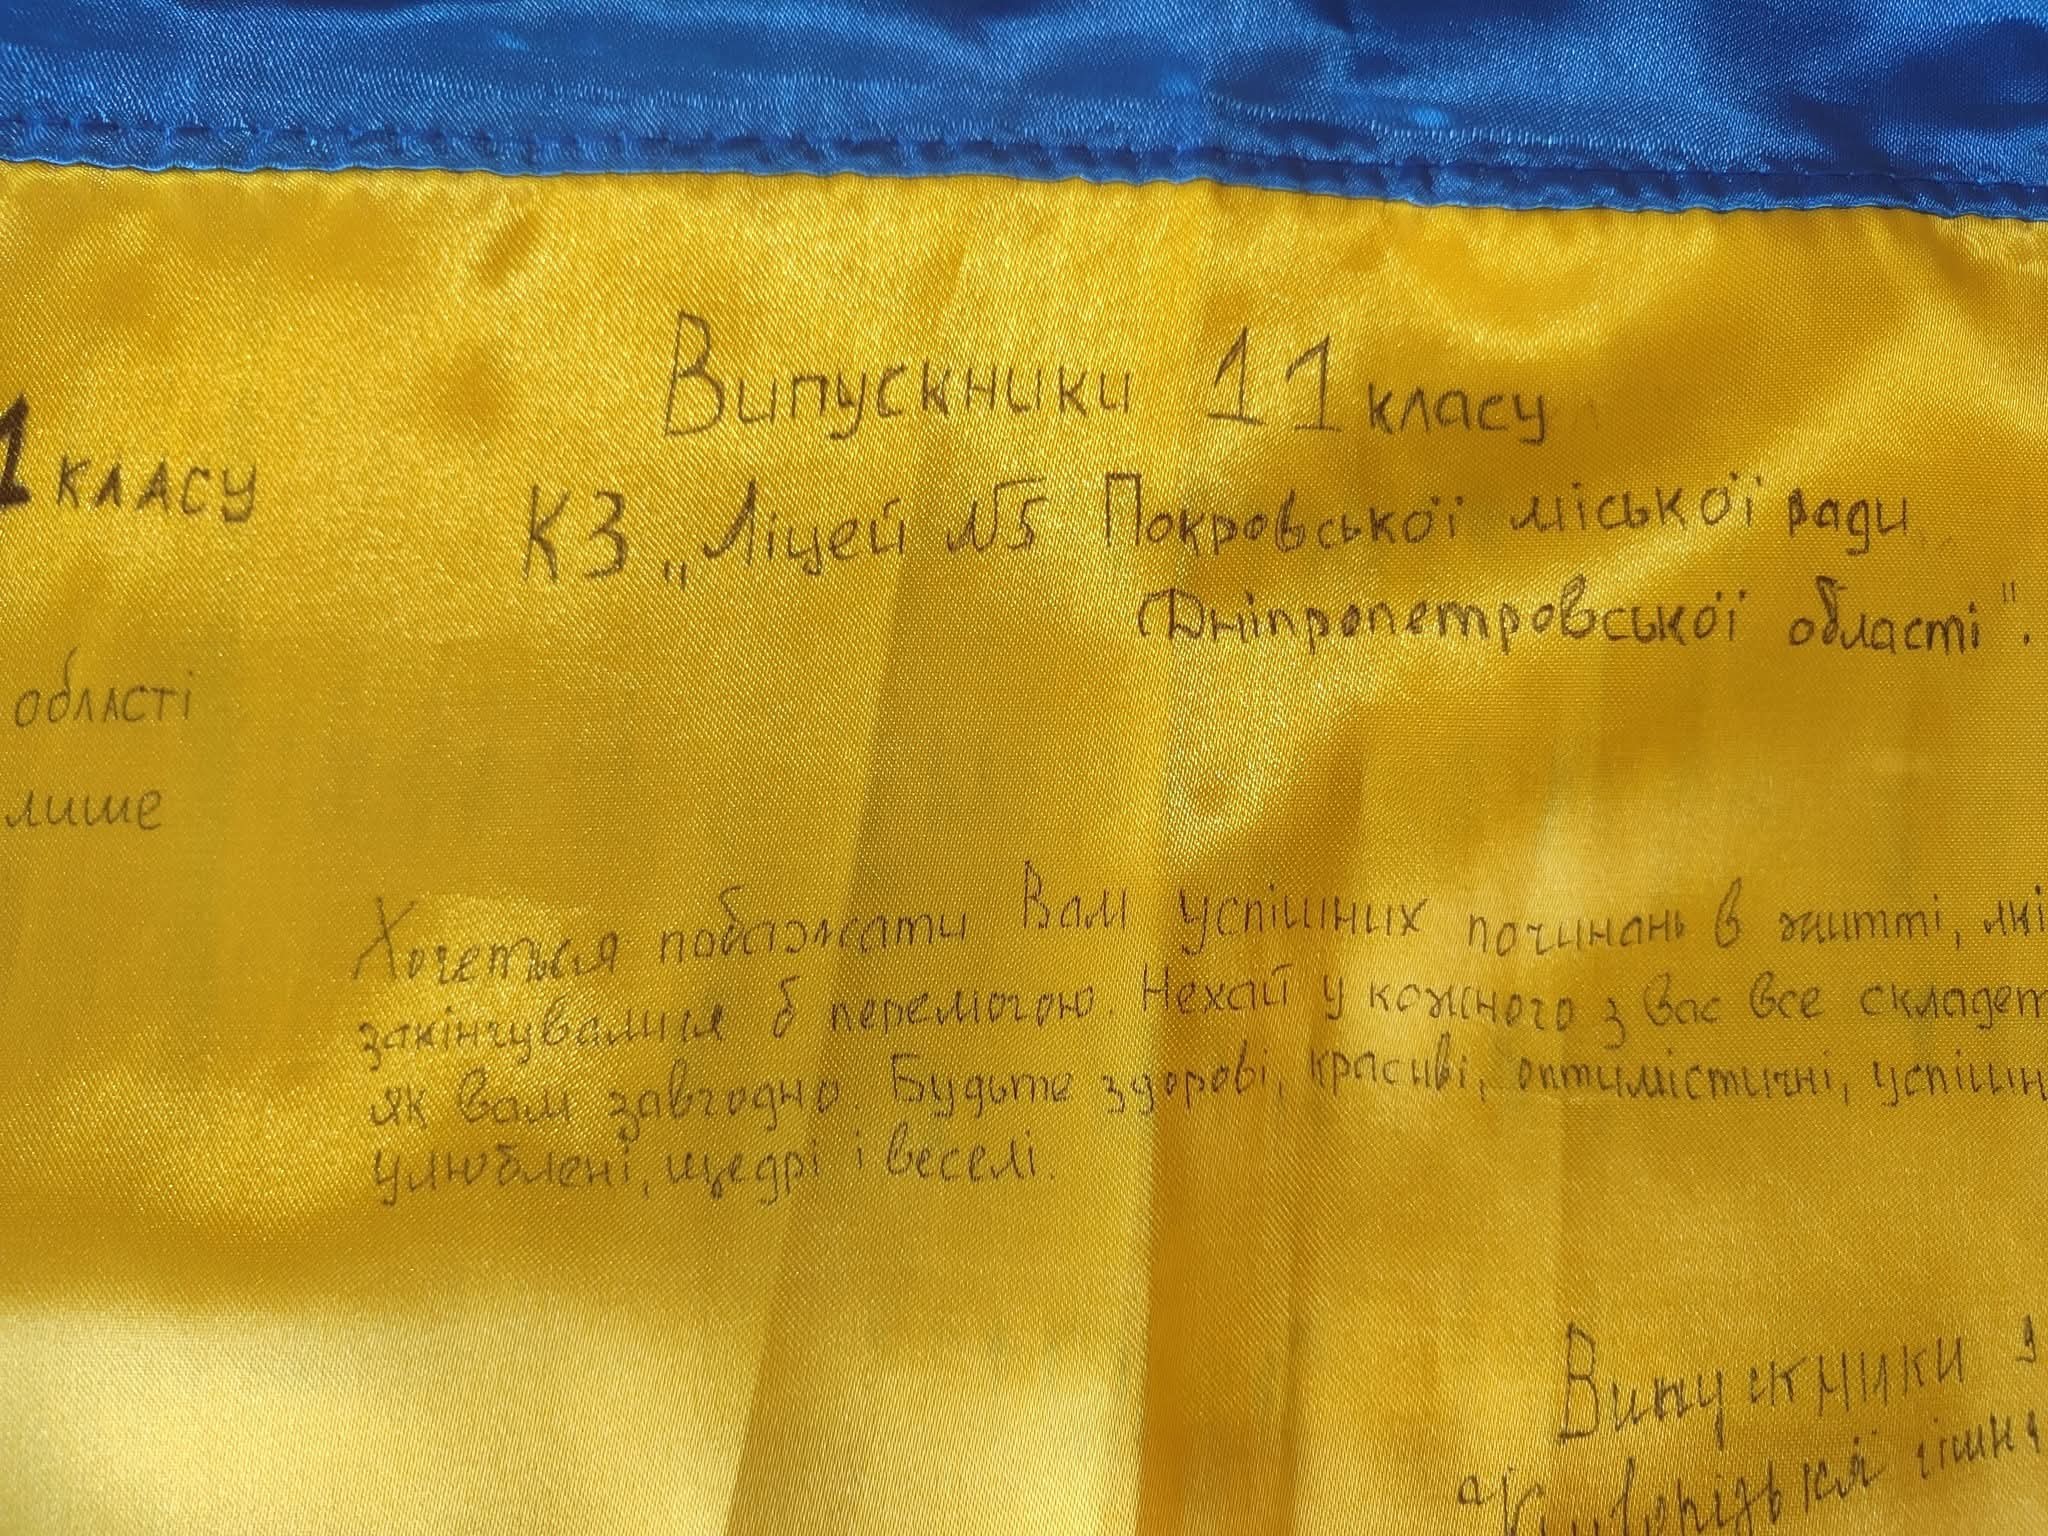 Випускники 11 класу
КЗ „Ліцей №5 Покровської міської ради
Дніпропетровської області".
1 класу
області
лише
Хочеться побажати Вам успішних починань в житті, які
закінчувалися б перемогою. Нехай у кожного з Вас все складет
як вам завгодно. Будьте здорові, красиві, оптимістичні, успішн
улюблені, щедрі і веселі.
Випускники